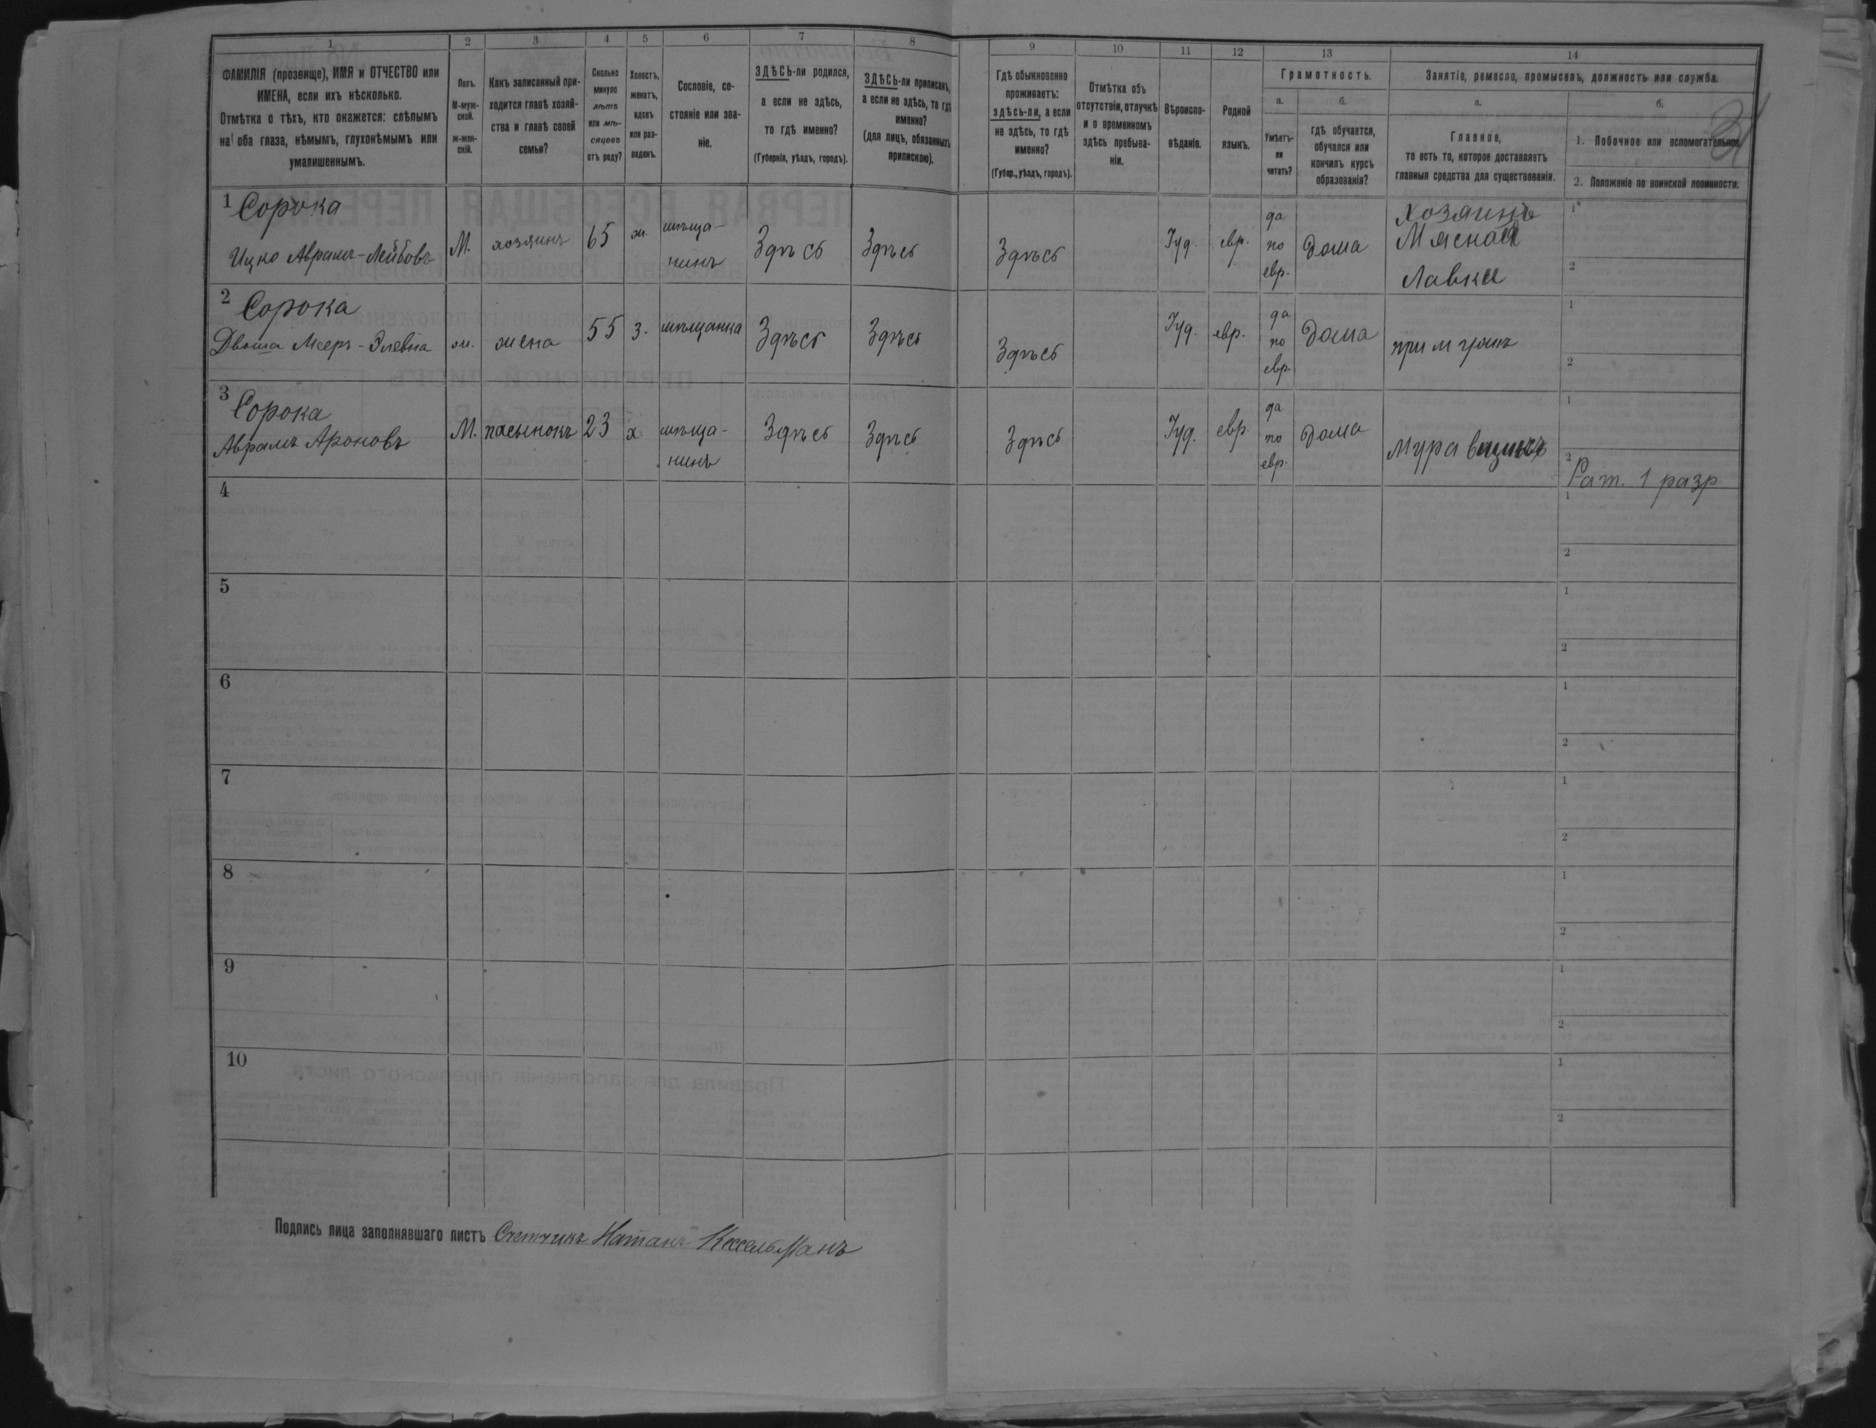 1 2 3 4 5 6 7 8 9 10 11 12 13 14
ФАМИЛІЯ (прозвище), ИМЯ и ОТЧЕСТВО или
ИМЕНА, если ихъ нѣсколько.
Отмѣтка о тѣхъ, кто окажется: слѣпымъ
на оба глаза, нѣмымъ, глухонѣмымъ или
умалишеннымъ.
Полъ.
М-муж-
ской.
ж-жен-
скій.
Какъ записанный при-
ходится главѣ хозяй-
ства и главѣ своей
семьи?
Сколько
минуло
лѣтъ
или мѣ-
сяцевъ
отъ роду?
Холостъ,
женатъ,
вдовъ
или раз-
веденъ.
Сословіе, со-
стояніе или зва-
ніе.
ЗДѢСЬ-ли родился,
а если не здѣсь,
то гдѣ именно?
(Губернія, уѣздъ, городъ).
ЗДѢСЬ-ли приписанъ,
а если не здѣсь, то гдѣ
именно?
(для лицъ, обязанныхъ
припискою).
Гдѣ обыкновенно
проживаетъ:
здѣсь-ли, а если
не здѣсь, то гдѣ
именно?
(Губер., уѣздъ, городъ).
Отмѣтка объ
отсутствіи, отлучкѣ
и о временномъ
здѣсь пребыва-
ніи.
Вѣроиспо-
вѣданіе.
Родной
языкъ.
Грамотность.
а.
Умѣетъ-
ли
читать?
б.
гдѣ обучается,
обучался или
кончилъ курсъ
образованія?
Занятіе, ремесло, промыселъ, должность или служба.
а.
Главное,
то есть то, которое доставляетъ
главныя средства для существованія.
б.
1. Побочное или вспомогательное.
2. Положеніе по воинской повинности.
1 Сорока
Ицко Аврамъ-Лейбовъ
М.
хозяинъ
65
ж.
мѣща-
нинъ
Здѣсь
Здѣсь
Здѣсь
Іуд.
евр.
да
по
евр.
Дома
Хозяинъ
Мясной
Лавки
1
2
2 Сорока
ж.
жена
55
з.
мѣщанка
Здѣсь
Здѣсь
Здѣсь
Іуд.
евр.
да
по
евр.
Дома
при мужѣ
1
2
3 Сорока
Аврамъ Ароновъ
М.
пасынокъ
23
х
мѣща-
нинъ
Здѣсь
Здѣсь
Здѣсь
Іуд.
евр
да
по
евр.
Дома
1
2
Рат. 1 разр.
4
1
2
5
1
2
6
1
2
7
1
2
8
1
2
9
1
2
10
1
2
Подпись лица заполнявшаго листъ Счетчикъ Натанъ Кесельманъ